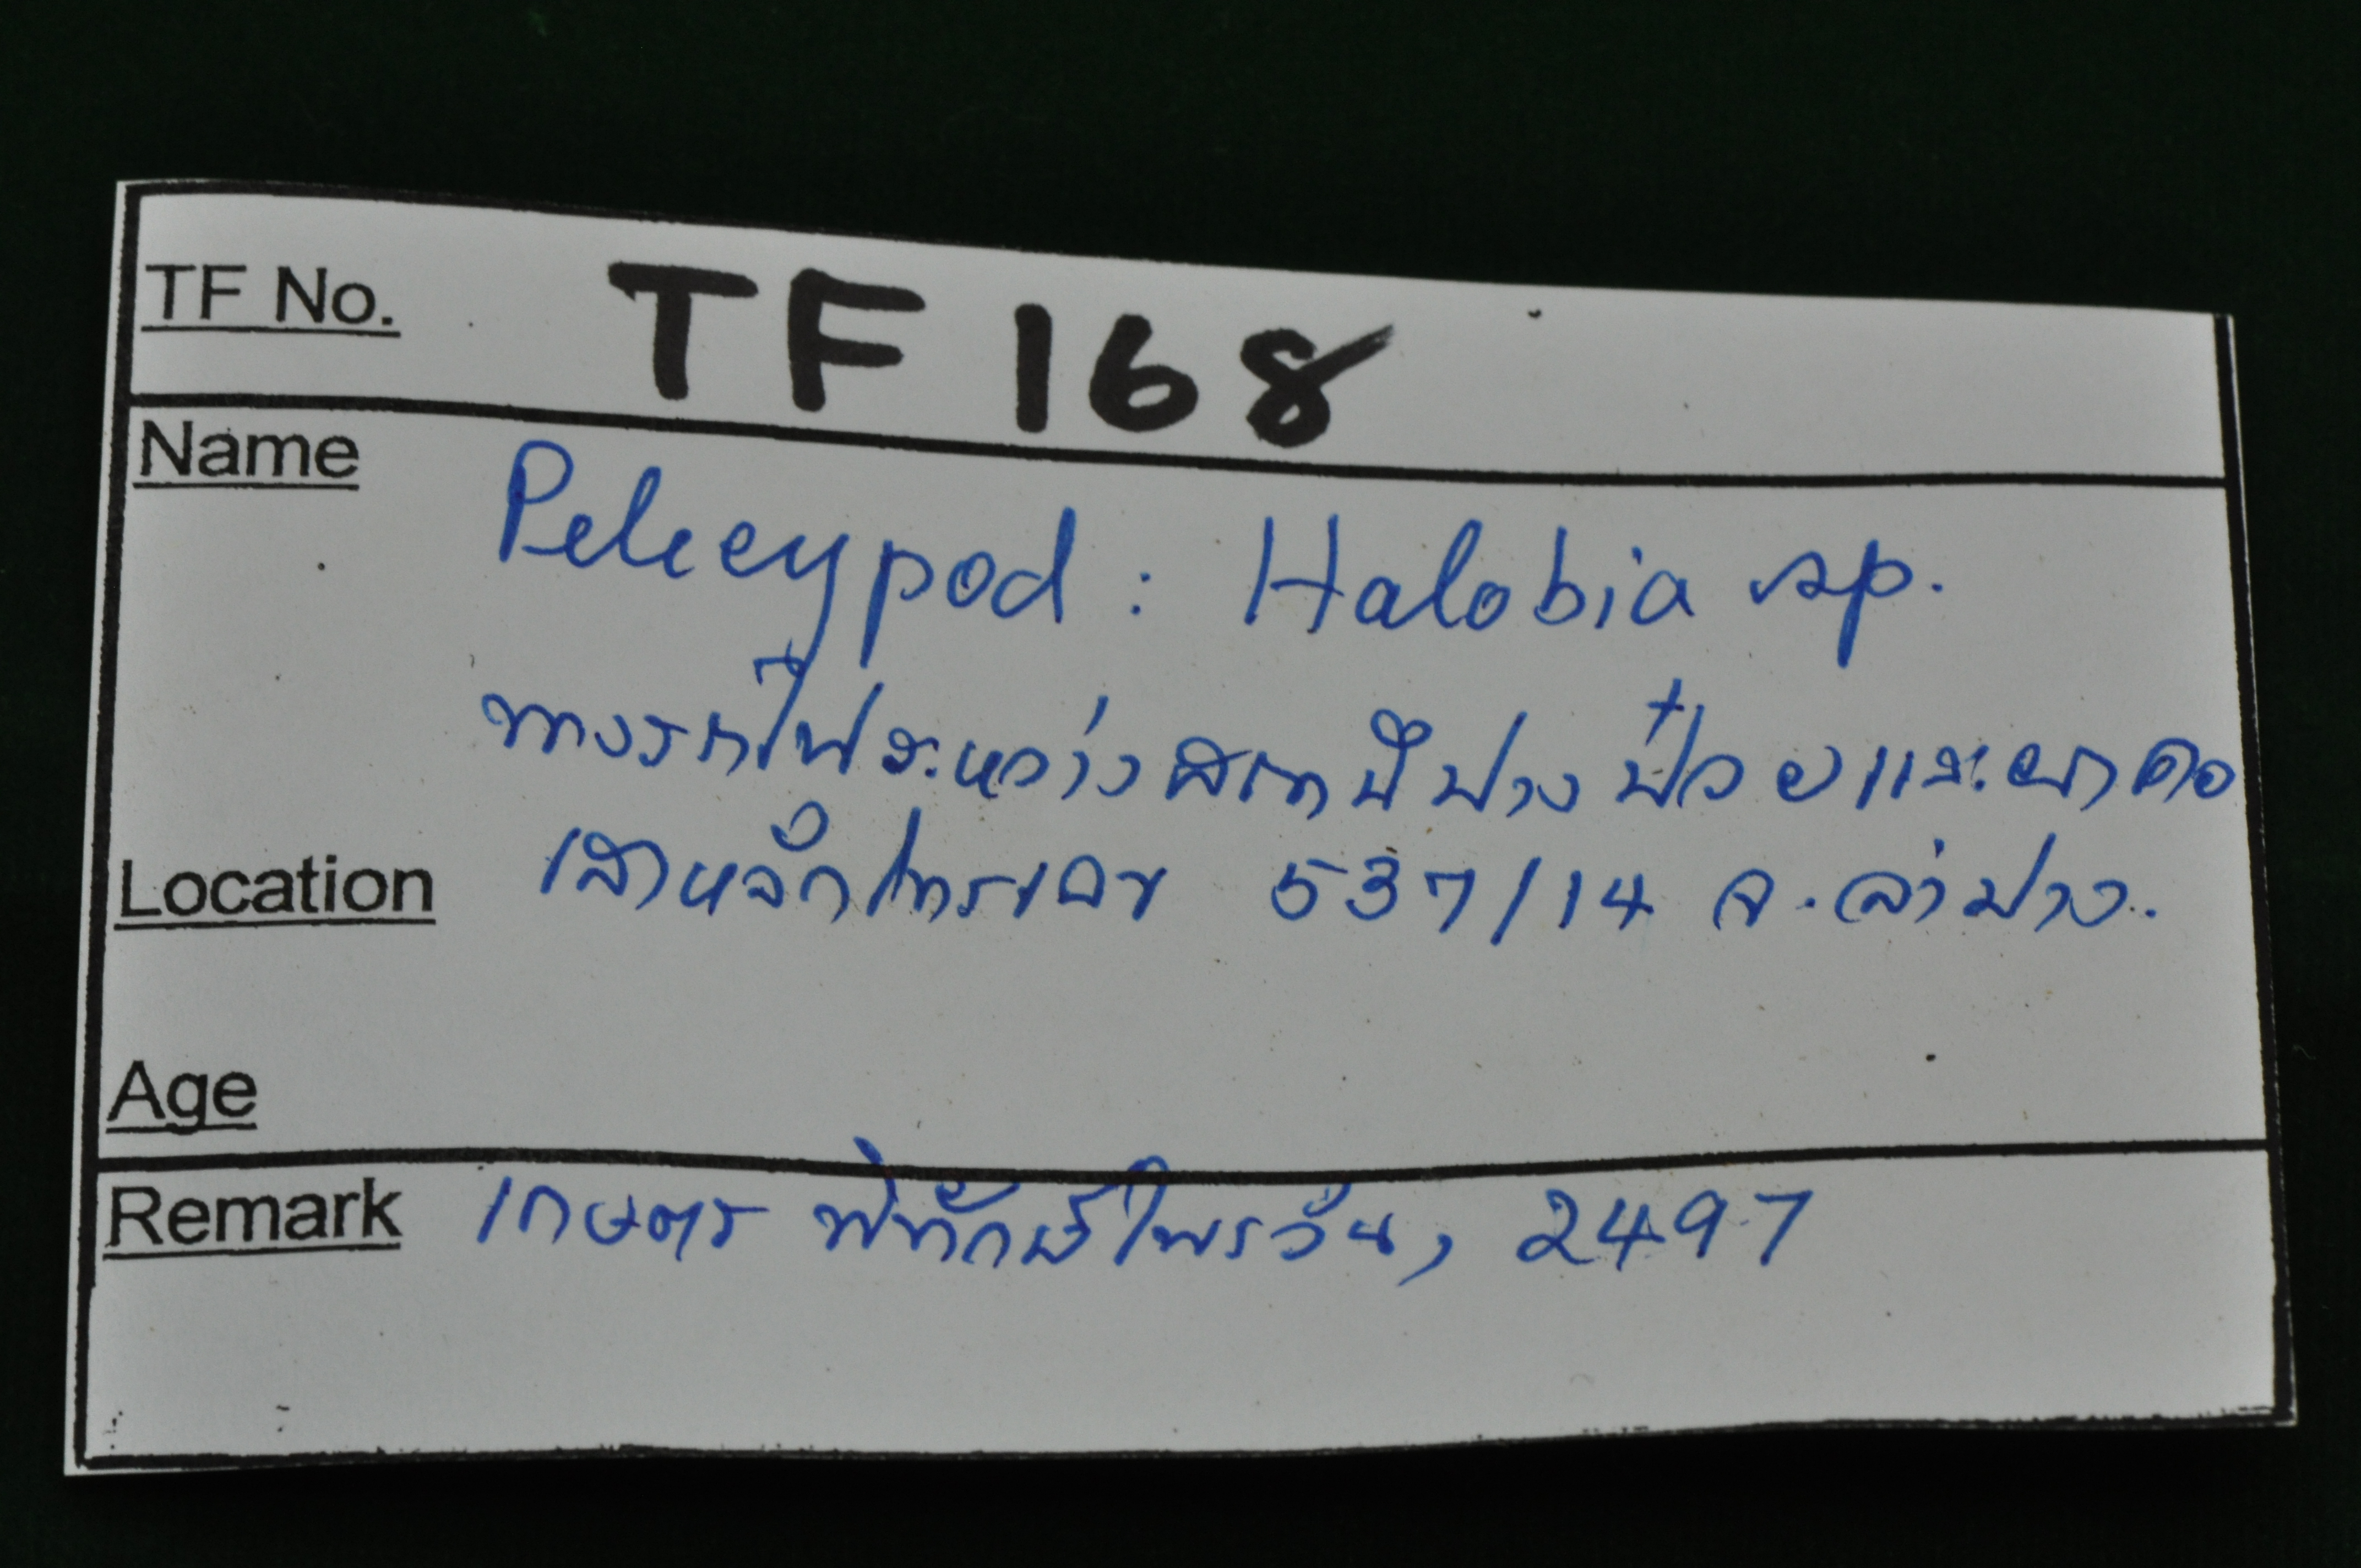 TF No. TF 168
Name Pelecypod : Halobia sp.
ทางรถไฟระหว่างสถานีปางป๋วยและผาคอ
Location เสาหลักโทรเลข 537/14 จ.ลำปาง.
Age
Remark เกษตร พิทักษ์ไพรวัน, 2497